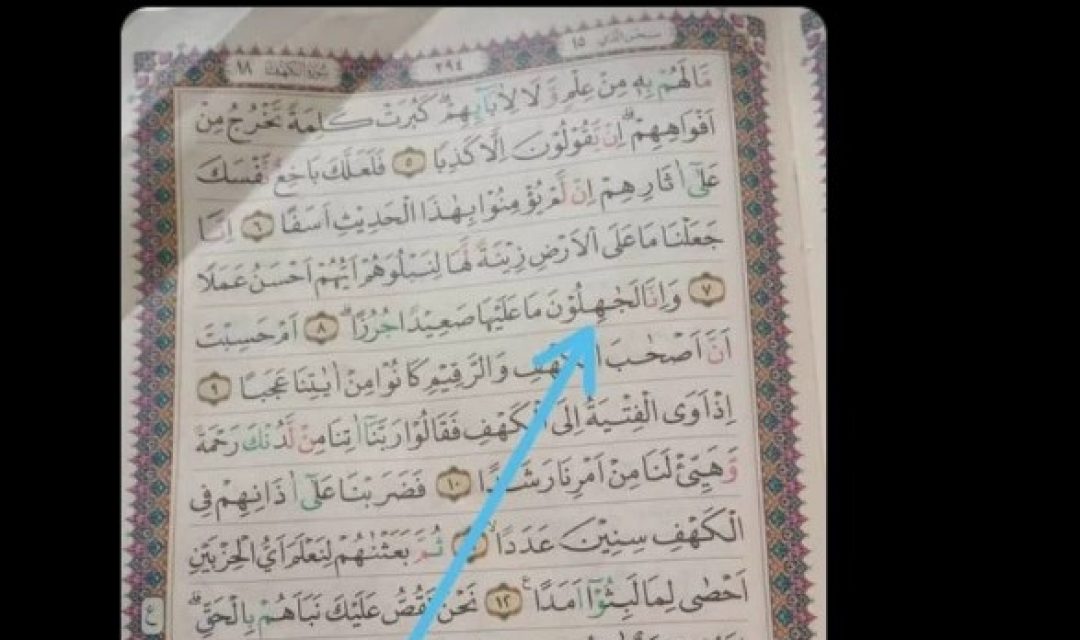 سبحن الذي ١٥
٢٩٤
سورة الكهف ١٨
مَا لَهُمْ بِهٖ مِنْ عِلْمٍ وَّلَا لِاٰبَاۤىِٕهِمْۗ كَبُرَتْ كَلِمَةً تَخْرُجُ مِنْ
اَفْوَاهِهِمْۗ اِنْ يَّقُوْلُوْنَ اِلَّا كَذِبًا ٥ فَلَعَلَّكَ بَاخِعٌ نَّفْسَكَ
عَلٰٓى اٰثَارِهِمْ اِنْ لَّمْ يُؤْمِنُوْا بِهٰذَا الْحَدِيْثِ اَسَفًا ٦ اِنَّا
جَعَلْنَا مَا عَلَى الْاَرْضِ زِيْنَةً لَّهَا لِنَبْلُوَهُمْ اَيُّهُمْ اَحْسَنُ عَمَلًا
٧ وَاِنَّا لَجٰهِلُوْنَ مَا عَلَيْهَا صَعِيْدًا جُرُزًاۗ ٨ اَمْ حَسِبْتَ
اَنَّ اَصْحٰبَ الْكَهْفِ وَالرَّقِيْمِ كَانُوْا مِنْ اٰيٰتِنَا عَجَبًا ٩
اِذْ اَوَى الْفِتْيَةُ اِلَى الْكَهْفِ فَقَالُوْا رَبَّنَآ اٰتِنَا مِنْ لَّدُنْكَ رَحْمَةً
وَّهَيِّئْ لَنَا مِنْ اَمْرِنَا رَشَدًا ١٠ فَضَرَبْنَا عَلٰٓى اٰذَانِهِمْ فِى
الْكَهْفِ سِنِيْنَ عَدَدًاۙ ثُمَّ بَعَثْنٰهُمْ لِنَعْلَمَ اَيُّ الْحِزْبَيْنِ
اَحْصٰى لِمَا لَبِثُوْٓا اَمَدًا ١٢ نَحْنُ نَقُصُّ عَلَيْكَ نَبَاَهُمْ بِالْحَقِّۗ
ع